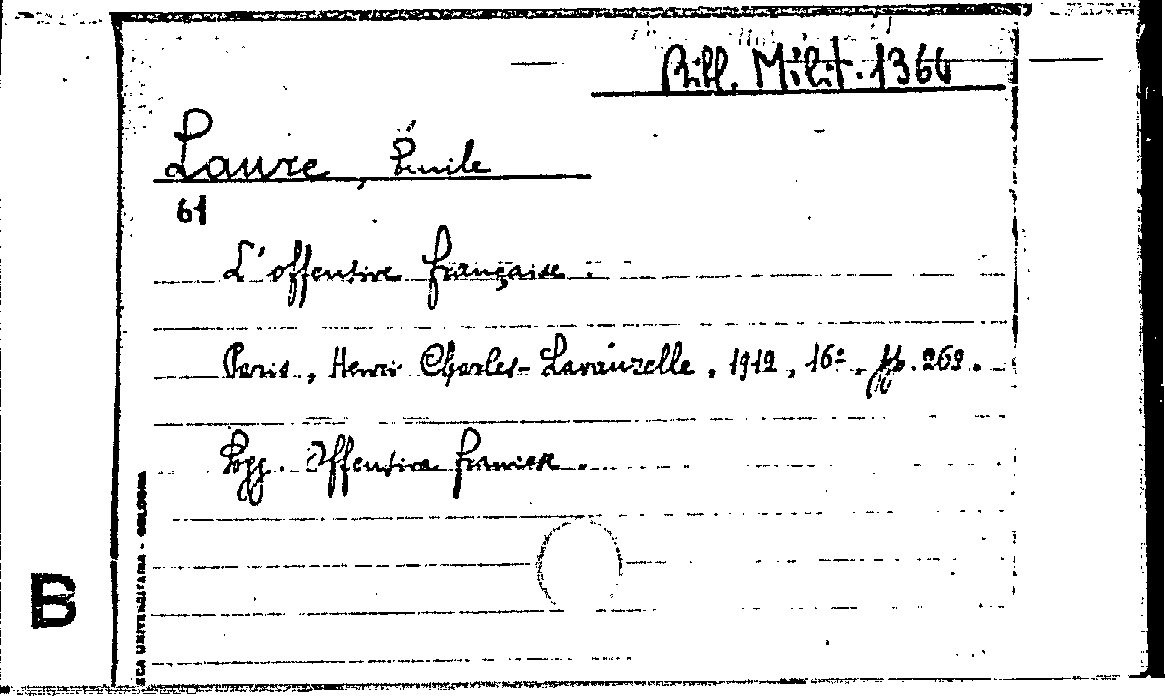 Bibl. Milit. 1364
Laure, Émile
61
L'offensive française.
Paris, Henri Charles-Lavauzelle, 1912, 16º, pp. 262.
Sogg. Offensiva francese.
B
ECA UNIVERSITARIA - BOLOGNA